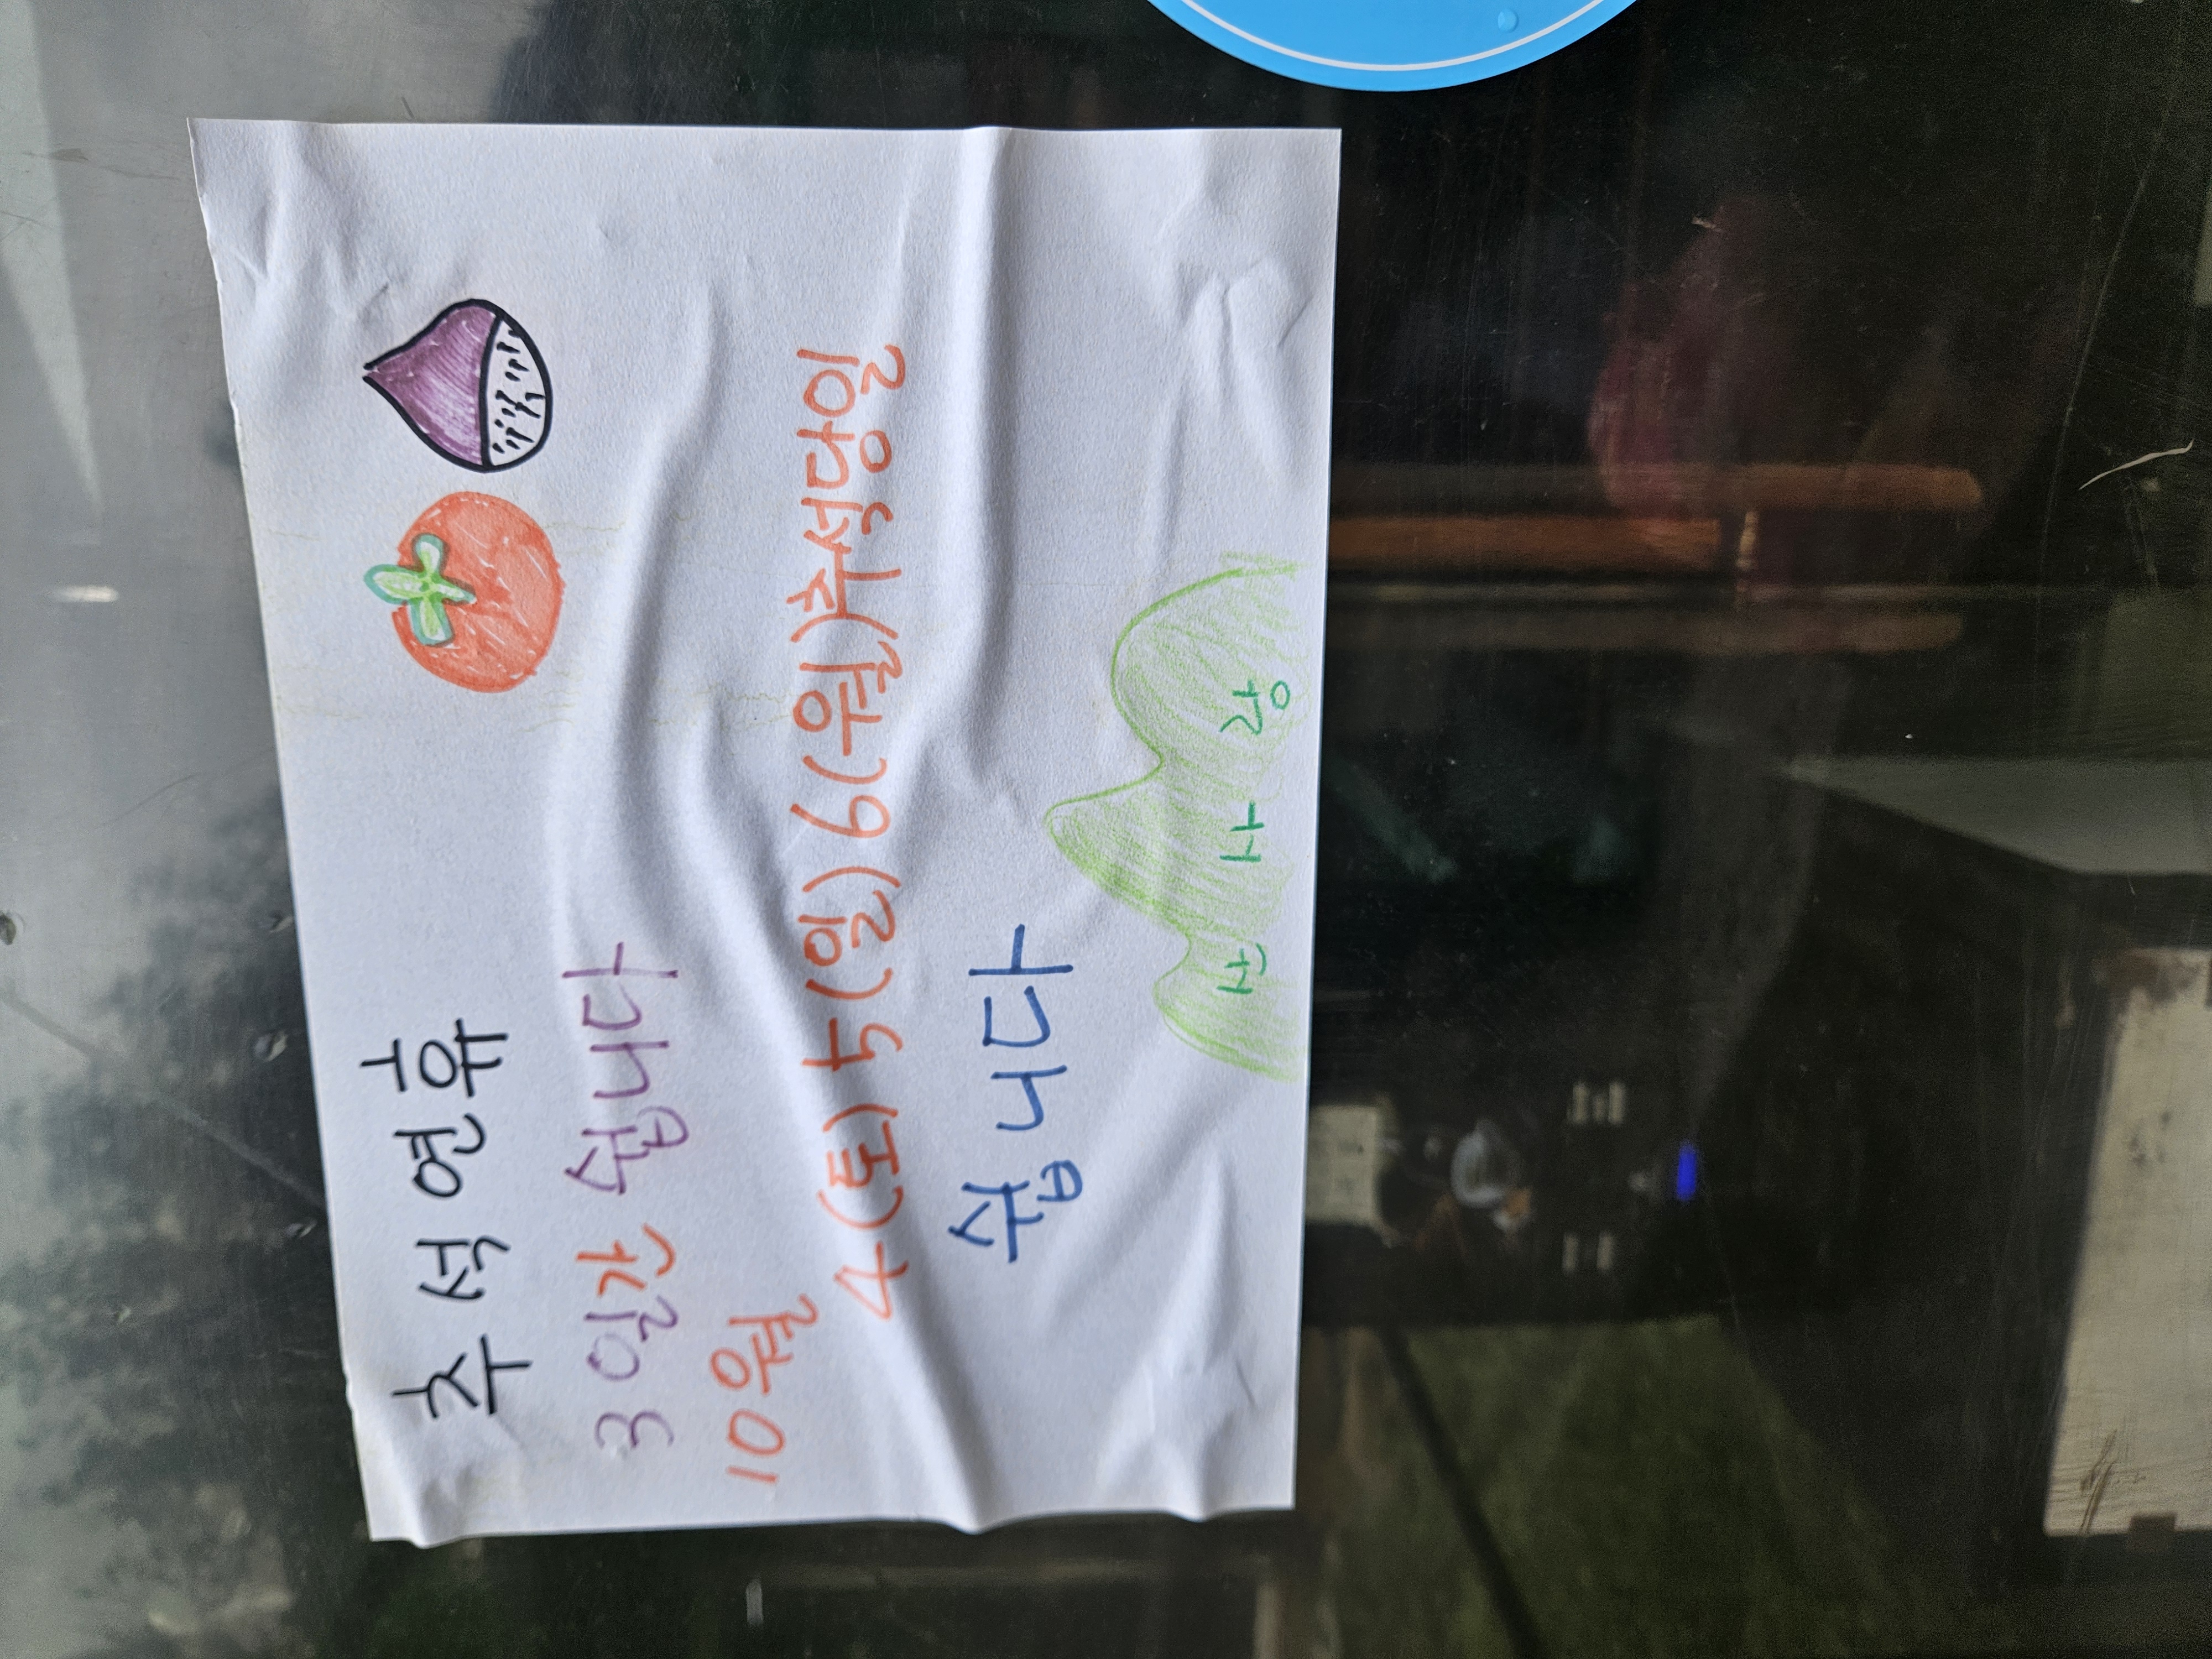 추석연휴
3일간 쉽니다
10월
4(토) 5(일) 6(월)추석당일
쉽니다
산사랑